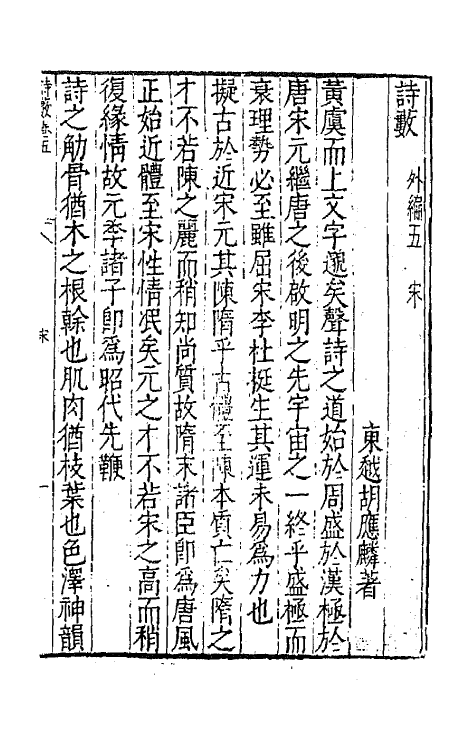 詩藪　外編五　宋
東越胡應麟著
黃虞而上文字邈矣聲詩之道始於周盛於漢極於
唐宋元繼唐之後啟明之先宇宙之一終乎盛極而
衰理勢必至雖屈宋李杜挺生其運未易為力也
擬古於近宋元其陳隋乎古體至陳本質亡矣隋之
才不若陳之麗而稍知尚質故隋末諸臣即為唐風
正始近體至宋性情泯矣元之才不若宋之高而稍
復緣情故元季諸子即為昭代先鞭
詩之觔骨猶木之根榦也肌肉猶枝葉也色澤神韻
詩藪卷五　宋　一